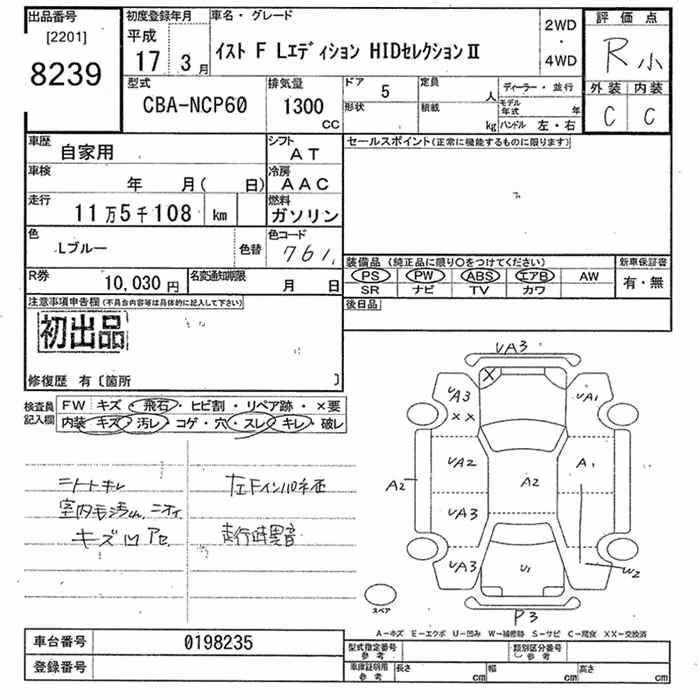 出品番号 初度登録年月 車名・グレード 2WD・4WD 評価点
[2201] 8239 平成 17 3月 イスト F Lエディション HIDセレクションⅡ R小
型式 排気量 ドア 5 定員 人 ディーラー・並行 外装 内装
CBA-NCP60 1300 CC 形状 積載 kg モデル年式 年 C C
ハンドル 左・右
車歴 自家用 シフト AT セールスポイント(正常に機能するものに限ります)
車検 年 月( 日) 冷房 AAC
走行 11万5千108 km 燃料 ガソリン
色 Lブルー 色替 色コード 761
装備品(純正品に限り○をつけてください) 新車保証書
R券 10,030円 名変通知期限 月 日
PS PW ABS エアB AW 有・無
SR ナビ TV カワ
注意事項申告欄(不具合内容等は具体的に記入して下さい) 後日品
初出品
修復歴 有〔箇所 〕
検査員記入欄 FW キズ・飛石・ヒビ割・リペア跡・×要
内装 キズ・汚レ・コゲ・穴・スレ・キレ・破レ
VA3
VA3 UA1
××
A2 UA2 A2 A1
UA3
UA3 U1 W2
P3
ニトトキレ 左Fインパネ歪
室内毛汚れ、ニオイ
キズ凹アセ 走行時異音
スペア
A-キズ E-エクボ U-凹み W-補修跡 S-サビ C-腐食 XX-交換済
車台番号 0198235 型式指定番号 参考 類別区分番号 参考
登録番号 車庫証明用 参考 長さ cm 幅 cm 高さ cm